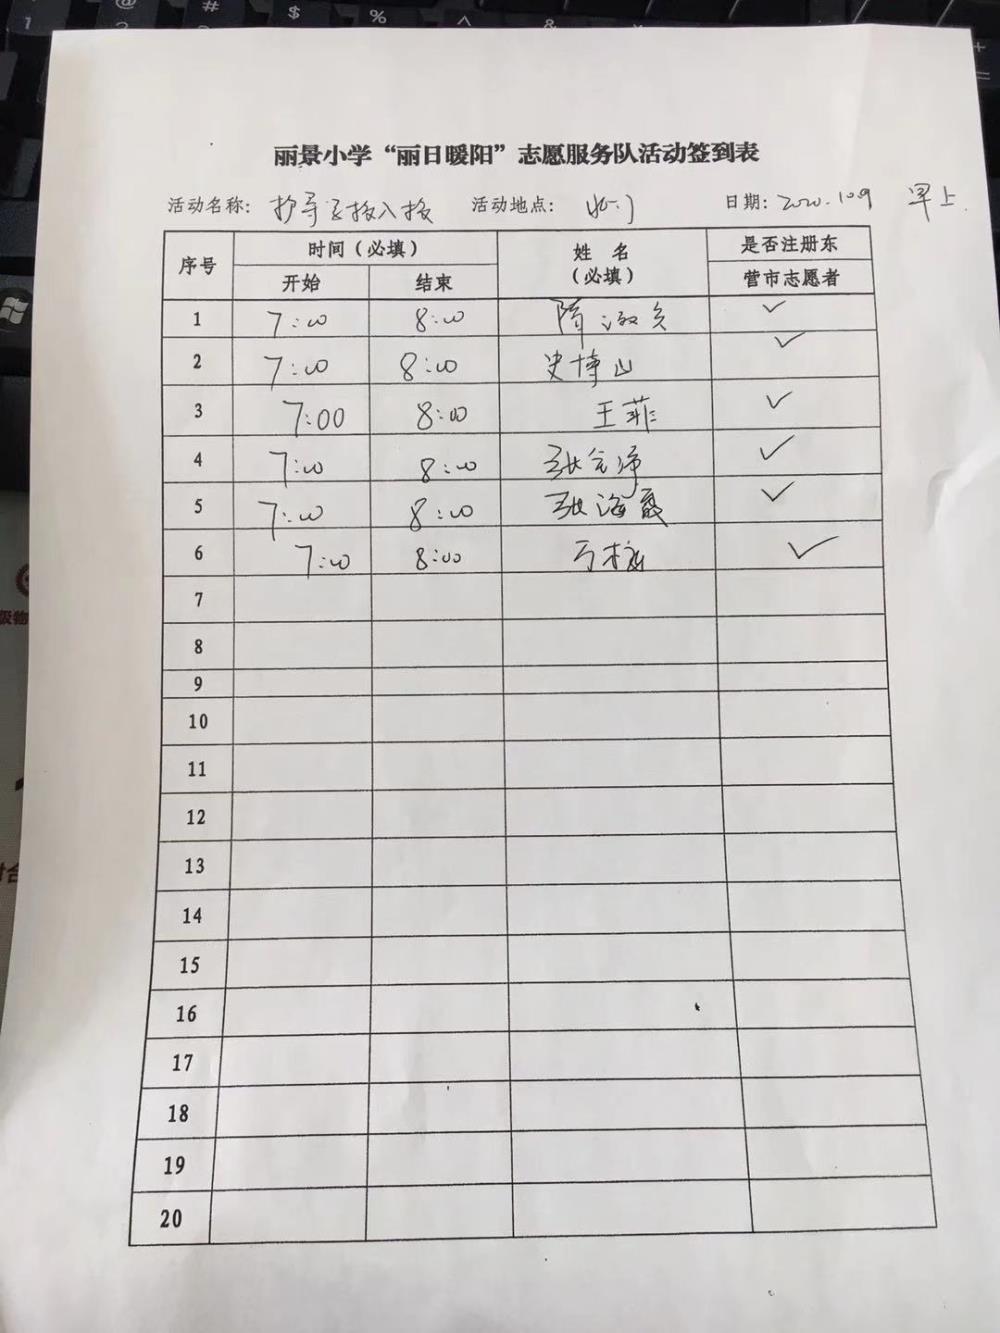 丽景小学“丽日暖阳”志愿服务队活动签到表
活动名称: 护导 入校 活动地点: 日期: 2020.10.9 早上
序号 时间（必填） 姓 名（必填） 是否注册东营市志愿者
开始 结束
1 7:00 8:00 隋 ✓
2 7:00 8:00 史博山 ✓
3 7:00 8:00 王菲 ✓
4 7:00 8:00 张 ✓
5 7:00 8:00 张海霞 ✓
6 7:00 8:00 ✓
7
8
9
10
11
12
13
14
15
16
17
18
19
20